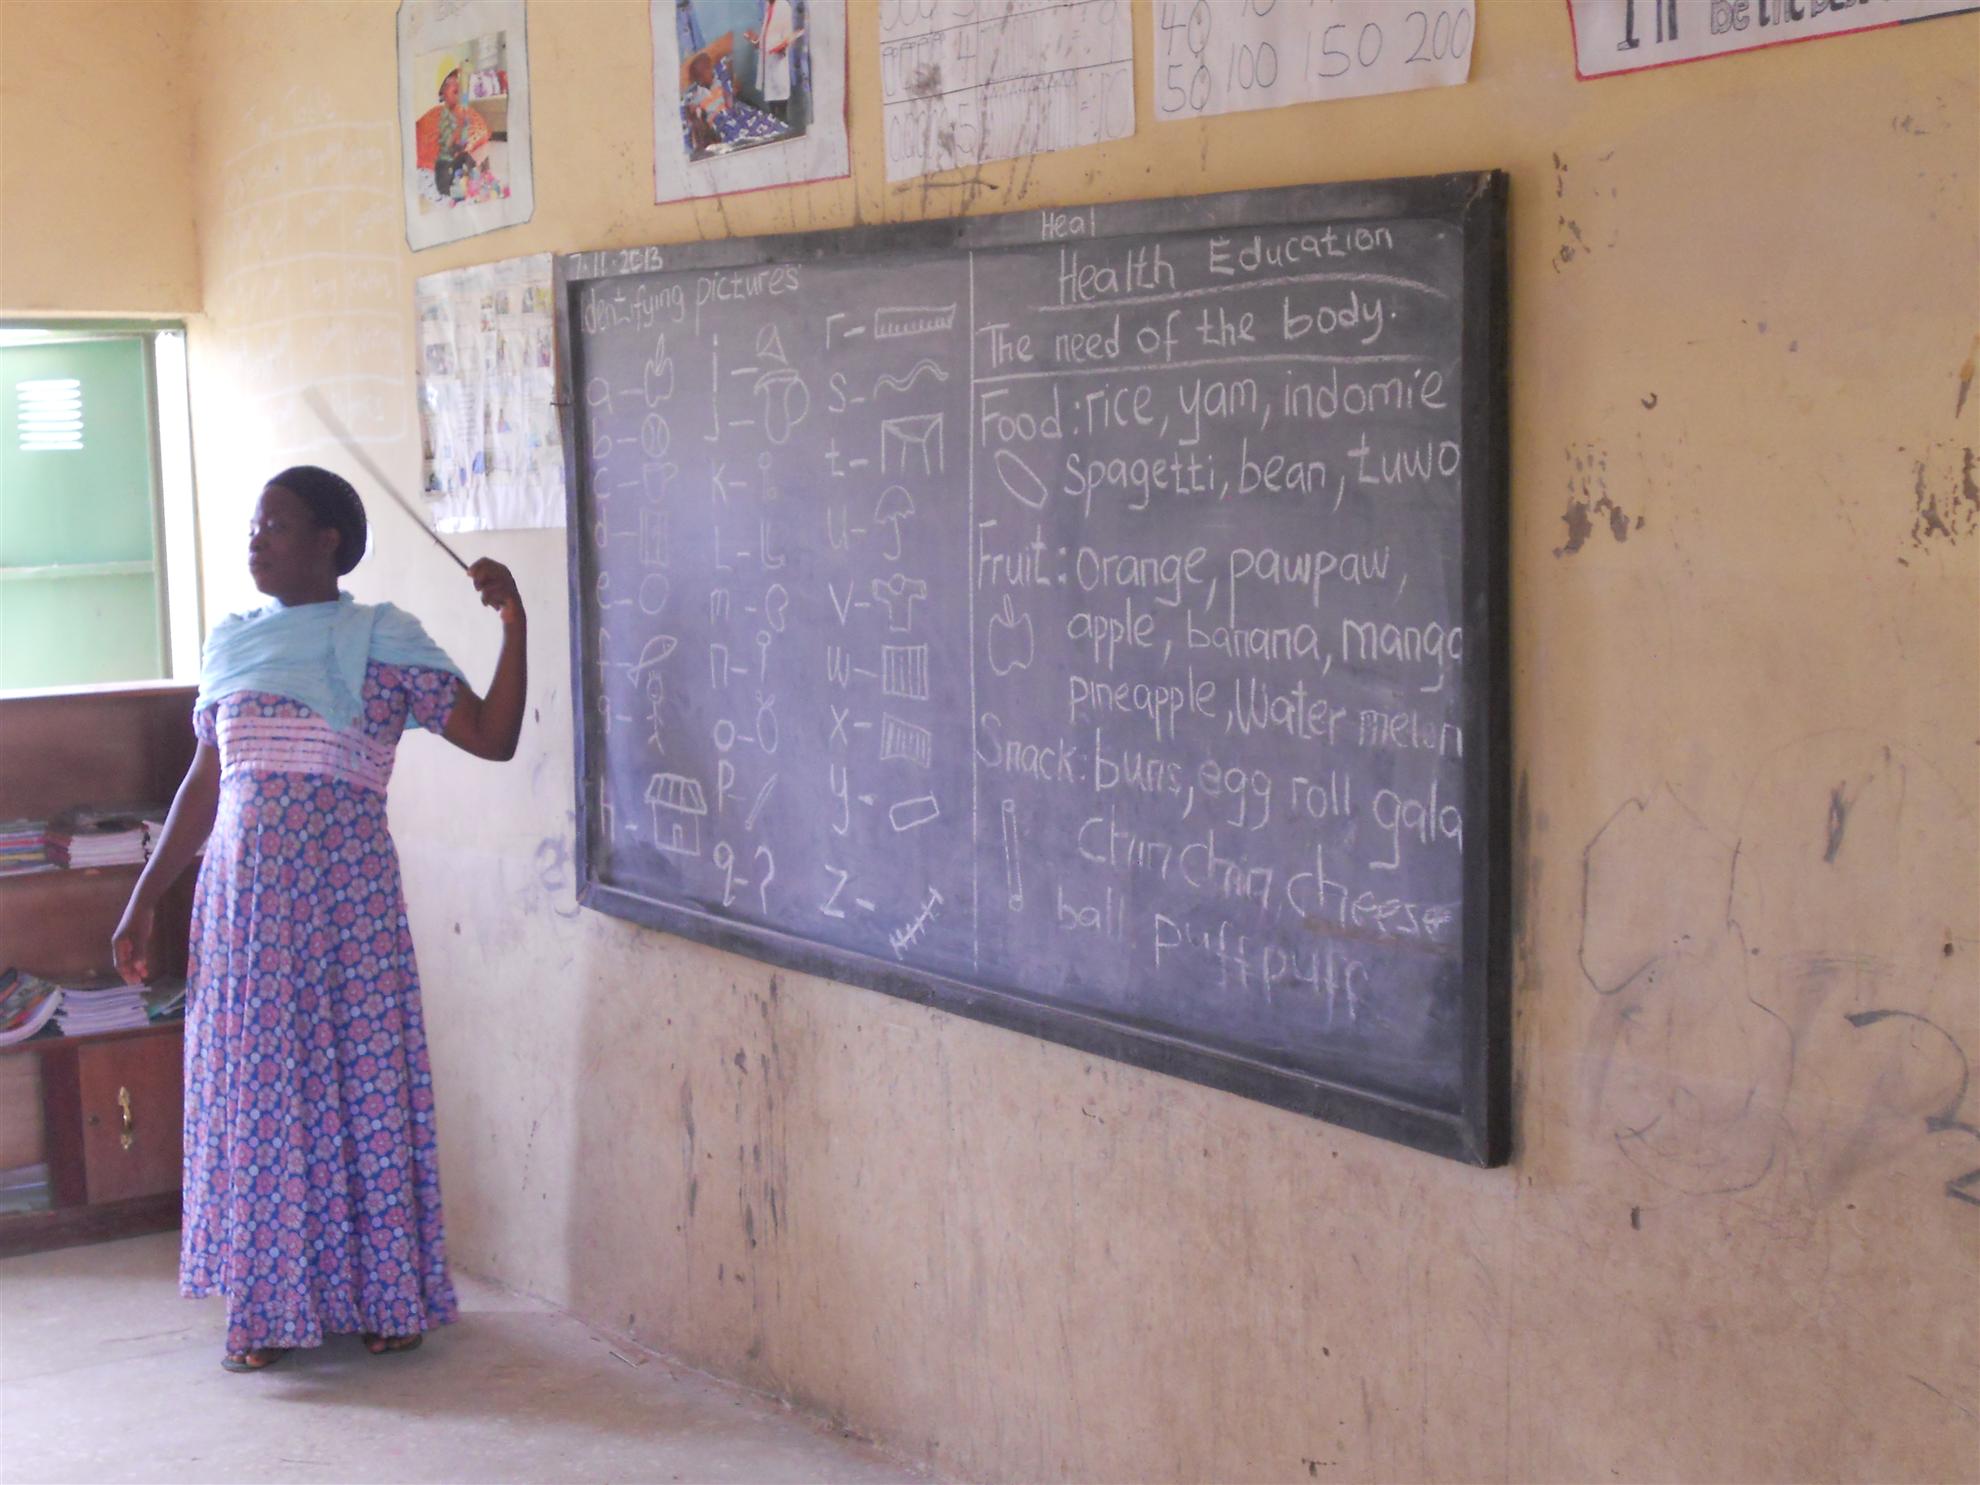 40
50 100 150 200
I'll
Heal
7.11.2013
Identifying pictures
a-
b-
c-
d-
e-
f-
g-
h-
i-
j-
K-
L-
m-
n-
o-
P-
q-?
r-
S-
t-
u-
V-
w-
X-
y-
Z-
Health Education
The need of the body.
Food: rice, yam, indomie
Spagetti, bean, tuwo
Fruit: orange, pawpaw,
apple, banana, mango
pineapple, Water melon
Snack: buns, egg roll gala
Chin Chin, cheese
ball puff puff